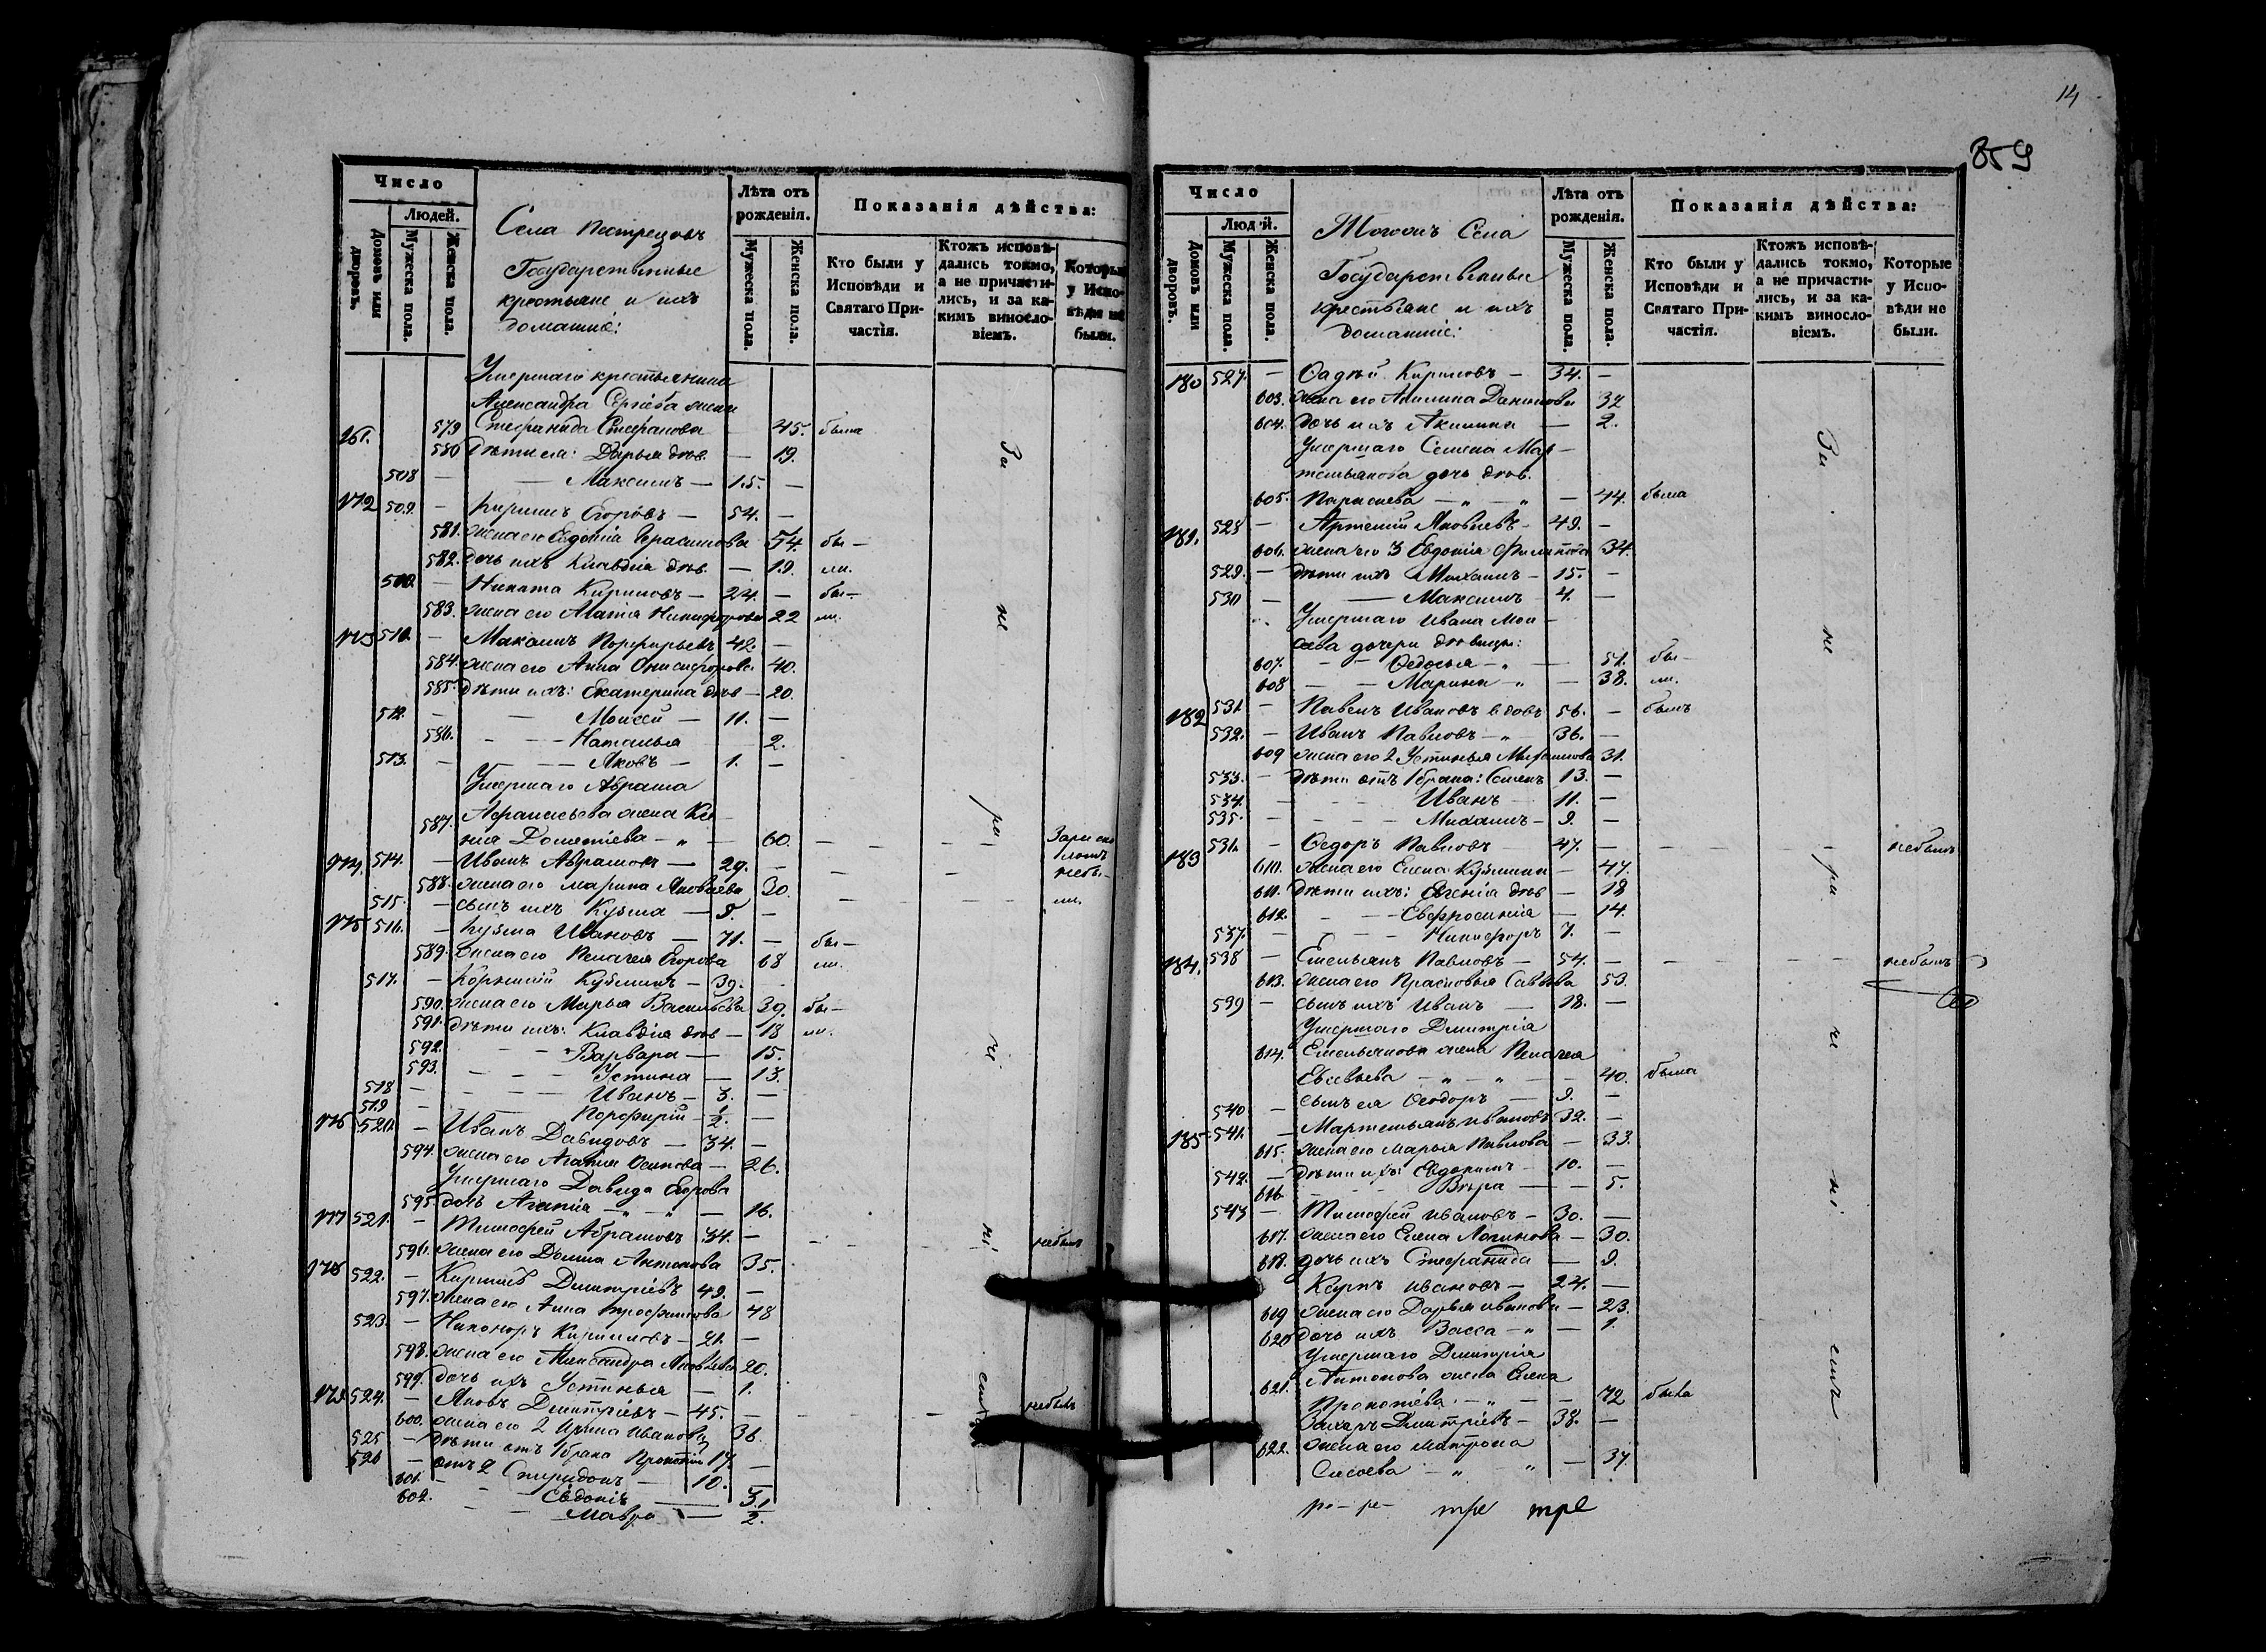 14
859
Число
Людей.
Домовъ или дворовъ.
Мужеска пола.
Женска пола.
Села Пестрецовъ
Государственные
крестьяне и ихъ
домашніе:
Лѣта отъ рожденія.
Мужеска пола.
Женска пола.
Показанія дѣйства:
Кто были у Исповѣди и Святаго Причастія.
Ктожъ исповѣдались токмо, а не причастились, и за какимъ винословіемъ.
Которые у Исповѣди не были.
Умершаго крестьянина
Александра Сергіева жена
579 Стефанида Стефанова — 45. была
580 дѣти ея: Дарья дѣв. — 19.
508 — Максимъ — 15. —
172 509. — Кирилъ Егоровъ — 54. —
581. жена его Евдокія Герасимова 54. бы-
582. дочь ихъ Клавдія дѣв. — 19. ли.
510. — Никита Кириловъ — 24. — бы-
583. жена его Агапія Никифорова 22 ли.
173 511. — Максимъ Порфирьевъ 42. —
584. жена его Анна Онисифорова 40.
585. дѣти ихъ: Екатерина дѣв — 20.
512. — Моисей — 11. —
586. — Наталья 2.
513. — Яковъ — 1. —
Умершаго Абрама
Афанасьева жена
587. Дометіева — 60.
174. 514. — Иванъ Абрамовъ — 29. —
588. жена его Марина Яковлева 30.
515. — сынъ ихъ Кузма — 8. —
175 516. — Кузма Ивановъ — 71. — бы-
589. жена его Пелагея Егорова 68 ли.
517. — Кузминъ — 39.
590. жена его Марья Васильева 39. бы-
591. дѣти ихъ: Клавдія дѣв — 18 ли.
592. — Варвара — 15.
593. — Устина — 13.
518 — Иванъ — 3. —
519 — Порфирій — 1/2. —
176 520. — Иванъ Давидовъ — 34. —
594. жена его Агапія Осипова — 26.
Умершаго Давида Егорова
595. дочь Агапія — 16.
177 521. — Тимофей Абрамовъ 34. — небылъ
596. жена его Домна Антонова 35.
178 522. — Кирилъ Дмитріевъ 49. —
597. жена его Анна Трофимова 48
523. — Никоноръ Кириловъ — 21. —
598. жена его Александра Яковлева 20.
599. дочь ихъ Устинья — 1.
179. 524. — Яковъ Дмитріевъ — 45. — небылъ
600. жена его 2 Ирина Иванова 36.
525 — дѣти отъ 1 брака Прокопій 17. —
526 — отъ 2 Спиридонъ — 10. —
601. — Евдокія — 3.
602. — Мавра — 2.
Число
Людей.
Домовъ или дворовъ.
Мужеска пола.
Женска пола.
Тогожъ Села
Государственные
крестьяне и ихъ
домашніе:
Лѣта отъ рожденія.
Мужеска пола.
Женска пола.
Показанія дѣйства:
Кто были у Исповѣди и Святаго Причастія.
Ктожъ исповѣдались токмо, а не причастились, и за какимъ винословіемъ.
Которые у Исповѣди не были.
180 527. — Фадѣй Кириловъ — 34. —
603. жена его Акилина Данилова 32
604. дочь ихъ Акилина — 2.
Умершаго Семена Мар-
темьянова дочь дѣв.
605. — 44. была
181. 528 — Артемій Яковлевъ — 49. —
606. жена его 3 Евдокія Филипова 34.
529. — дѣти ихъ Михаилъ — 15. —
530 — Максимъ 4. —
Умершаго Ивана Мои-
сеева дочери дѣвицы:
607. — Федосья — 51. бы-
608 — Марина — 38. ли.
182 531. — Павелъ Ивановъ вдовъ 56. — былъ
532. — Иванъ Павловъ — 36. —
609 жена его 2 Устинья 31.
533. — дѣти отъ 1 брака: Семенъ 13. —
534. — Иванъ 11. —
535. — Михаилъ — 9. —
183 536. — Федоръ Павловъ — 47. — небылъ
610. жена его Елена Кузмина — 47.
611. дѣти ихъ: Евгенія дѣв — 18
612. — Евфросинія — 14.
537. — Никифоръ 7. —
184. 538 — Емельянъ Павловъ — 54. — небылъ
613. жена его Прасковья Саввева 53.
539 — сынъ ихъ Иванъ — 18. —
Умершаго Дмитрія
614. Емельянова жена Пелагея
— 40. была
540 — сынъ ея Феодоръ — 9. —
185 541. — Мартемьянъ Ивановъ 32. —
615. жена его Марья Павлова — 33.
542. — дѣти ихъ — 10. —
616 — Вѣра — 5.
543 — Тимофей Ивановъ — 30. —
617. жена его Елена Логинова — 30.
618. дочь ихъ Стефанида — 9.
Карпъ Ивановъ — 24. —
619 жена его Дарья Иванова — 23.
620 дочь ихъ Васса — 1.
Умершаго Дмитрія
621. Антонова жена Елена
Прокопіева — 72 была
Захаръ Дмитріевъ — 38. —
622. жена его Матрона
Сысоева — 37.